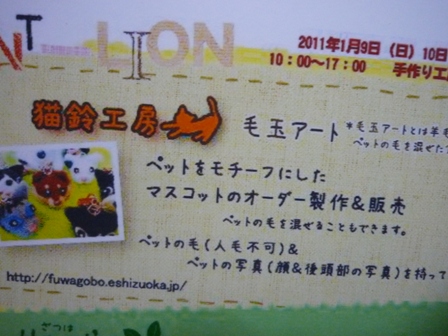 NT LION
2011年1月9日（日）10日
10：00〜17：00 手作り工
猫鈴工房
毛玉アート
*毛玉アートとは羊毛
ペットの毛を混ぜた
ペットをモチーフにした
マスコットのオーダー製作＆販売
ペットの毛を混ぜることもできます。
ペットの毛（人毛不可）＆
ペットの写真（顔＆後頭部の写真）を持って
http://fuwagobo.eshizuoka.jp/
ごつは